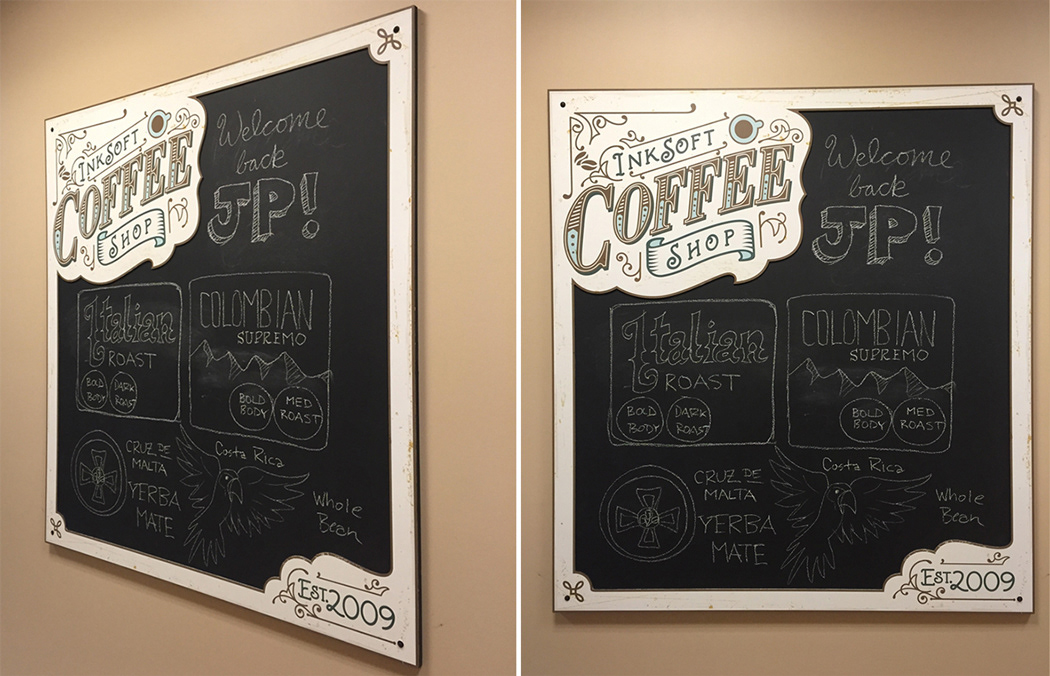 INKSOFT
COFFEE
SHOP
Welcome
back
JP!
Italian
ROAST
BOLD
BODY
DARK
ROAST
COLOMBIAN
SUPREMO
BOLD
BODY
MED
ROAST
CRUZ DE
MALTA
YERBA
MATE
Costa Rica
Whole
Bean
EST. 2009
INKSOFT
COFFEE
SHOP
Welcome
back
JP!
Italian
ROAST
BOLD
BODY
DARK
ROAST
COLOMBIAN
SUPREMO
BOLD
BODY
MED
ROAST
CRUZ DE
MALTA
YERBA
MATE
Costa Rica
Whole
Bean
EST. 2009